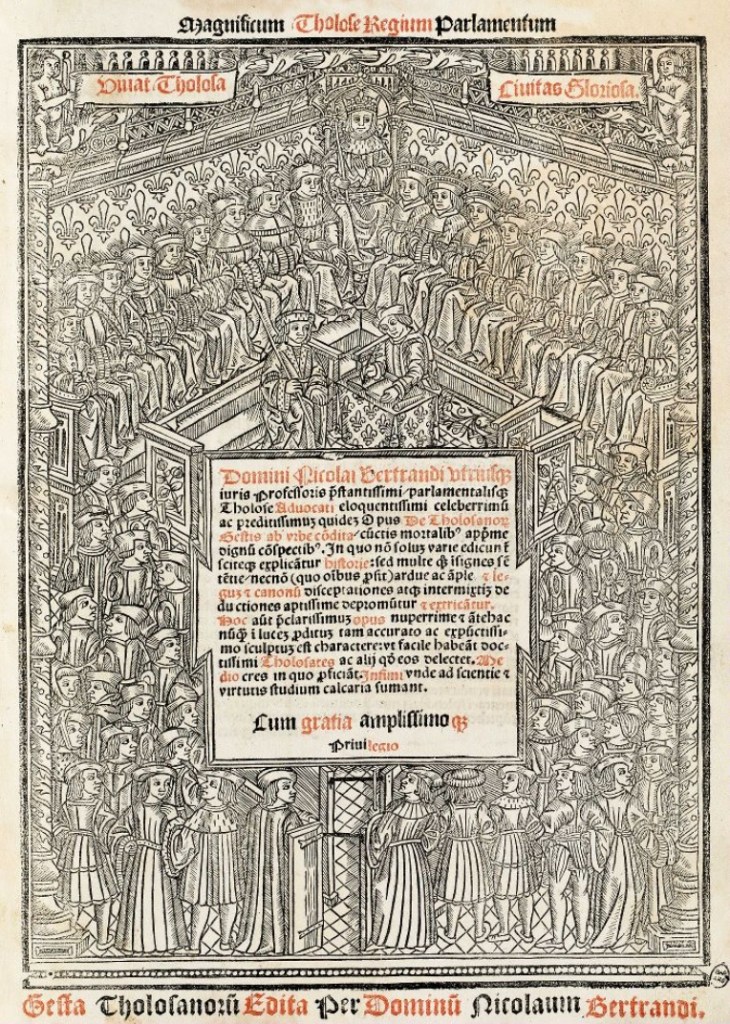 Magnificum Tholose Regium Parlamentum
Viuat Tholosa
Ciuitas Gloriosa.
Domini Nicolai Bertrandi vtriusqꝫ
iuris Professoris p̄stantissimi/parlamentalisqꝫ
Tholose Aduocati eloquentissimi celeberrimū
ac preditissimuꝫ quideꝫ Opus De Tholosanoꝝ
Gestis ab vrbe cōdita/cūctis mortalibꝰ appͥme
dignū cōspectibꝰ. In quo nō soluꝫ varie edicunt̄
sciteqꝫ explicātur historie: sed multe qꝫ īsignes sē
tētie/necnō (quo oībus ꝓsit) ardue ac āple ⁊ le-
guꝫ ⁊ canonū disceptationes atqꝫ intermixtis de
ductiones aptissime depromūtur ⁊ extricātur.
Hoc aūt p̄clarissimuꝫ opus nuperrime ⁊ āteha​c
nūqꝫ̄ ī luceꝫ ꝓditus tam accurato ac expūctissi-
mo sculptuꝫ est charactere: vt facile habeāt doc-
tissimi Tholosates ac alij qͦ eos delectet. Me
diocres in quo ꝓficiāt. Infimi vnde ad scientie ⁊
virtutis studium calcaria sumant.
Cum gratia amplissimo qꝫ
Priuilegio
Gesta Tholosanorū Edita Per Dominū Nicolaum Bertrandi.